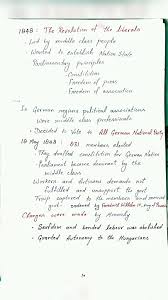 1848 : The Revolution of the Liberals
- Led by middle class people
- Wanted to establish Nation State
Parliamentary principles
- Constitution
- Freedom of press
- Freedom of association
- In German regions political associations
were middle class professionals
- Decided to Vote to All German National
18 May 1848 831 members elected
- They drafted constitution for German Nation
- Parliament became dominant by the
middle class
- Workers and Artisans demands not
fulfilled and unsupport the govt
- Troop captured to the members and
endorsed by Friedrich William IV, King of Prussia
Changes were made by Monarchy
- Serfdom and bonded labour was abolished
- Granted Autonomy to the Hungarians